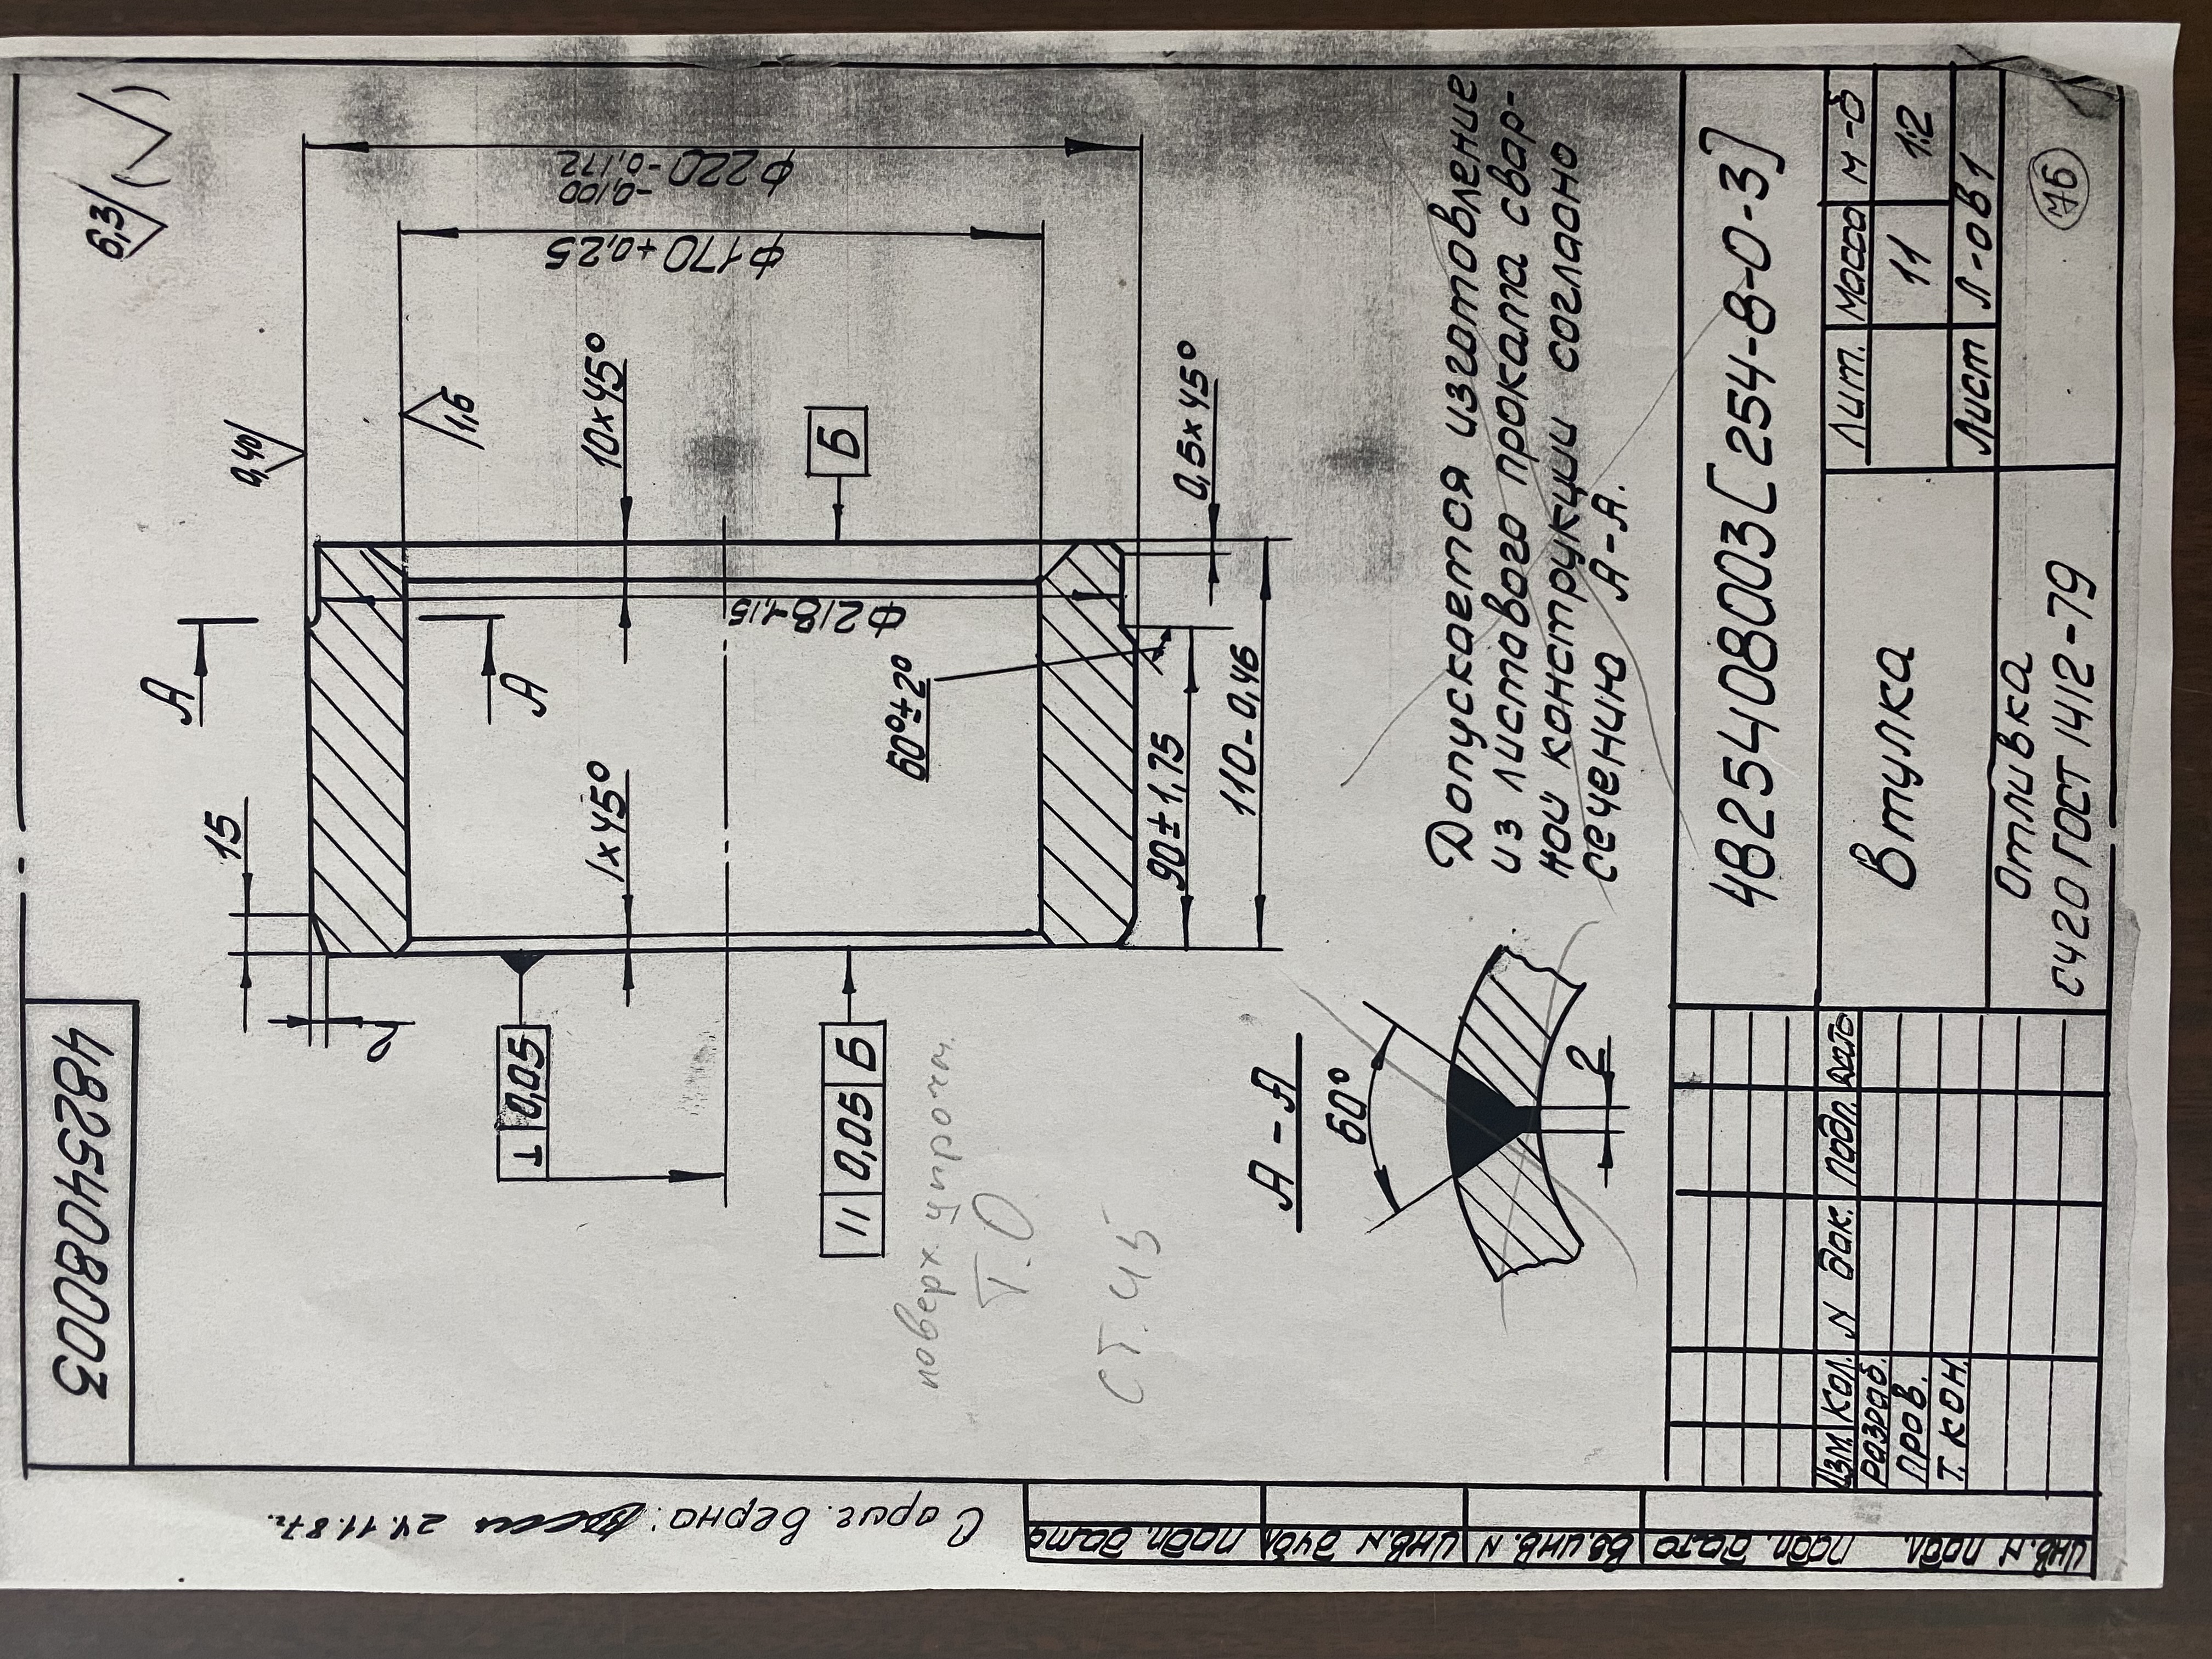 4825408003
6,3 (√)
0,40
1,6
А
А
15
2
10×45°
1×45°
Б
⊥ 0,05
// 0,05 Б
Ф170+0,25
Ф220 -0,100 -0,172
Ф218-1,15
60°±2°
0,5×45°
90±1,75
110-0,46
поверх. упрочн.
Т.О.
ст. 45
А-А
60°
2
Допускается изготовление
из листового проката свар-
ной конструкции согласно
сечению А-А.
4825408003[254-8-0-3]
Втулка
Лит. Масса М-б
11 1:2
Лист Л-ов 1
Отливка
СЧ20 ГОСТ 1412-79
Изм. Кол. N док. Подп. Дата
Разраб.
Пров.
Т. кон.
С ориг. верно: 24.11.87г.
Инв. N подл. Подп. дата Вз. инв. N Инв. N дубл. Подп. дата